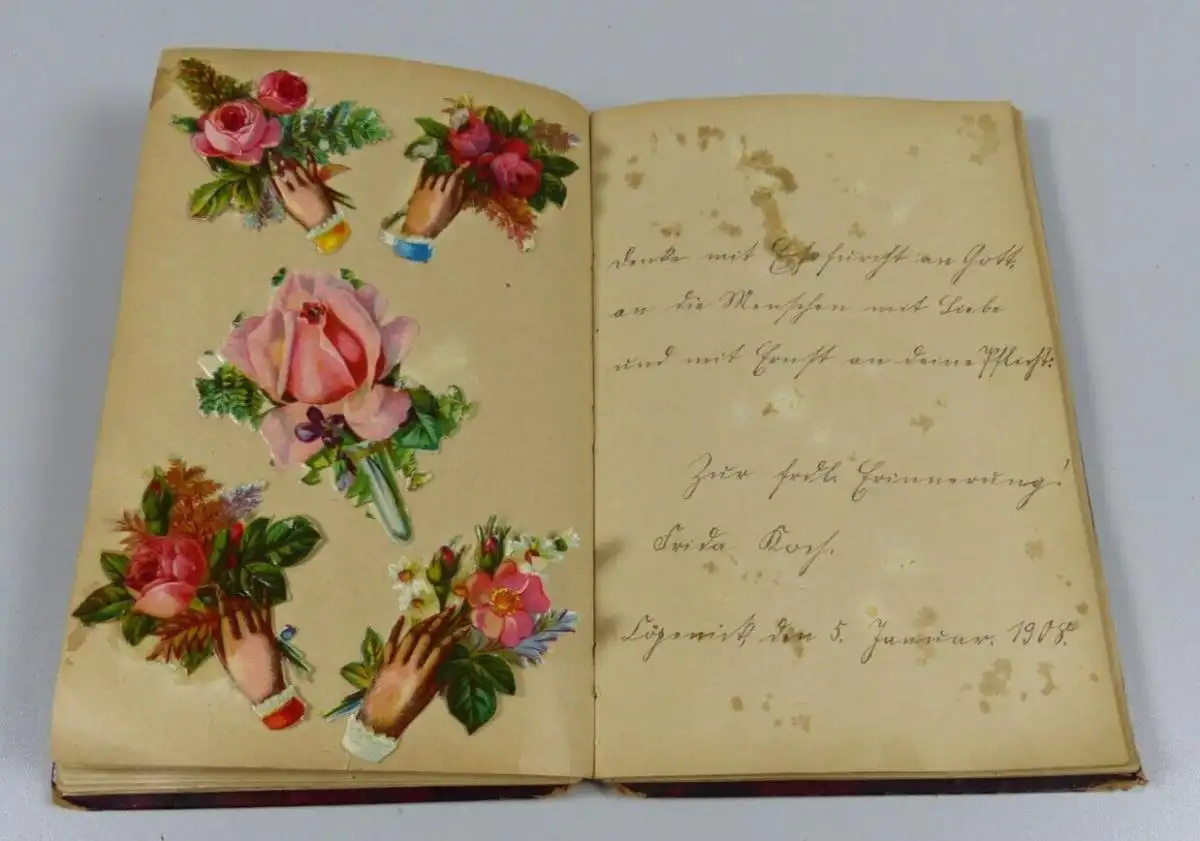 Denke mit Ehrfurcht an Gott,
an die Menschen mit Liebe
und mit Ernst an deine Pflicht.
Zur frdl. Erinnerung!
Frida Koch.
Cöpenick, den 5. Januar. 1908.